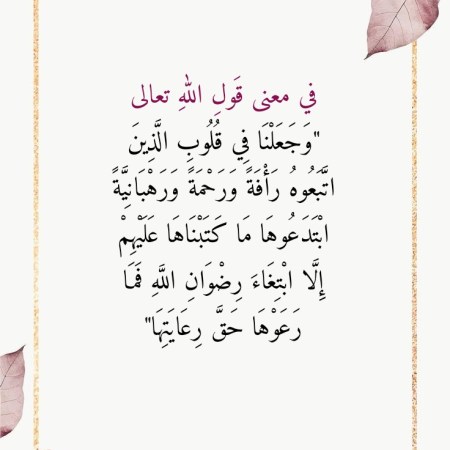 في معنى قَولِ اللهِ تعالى
"وَجَعَلْنَا فِي قُلُوبِ الَّذِينَ
اتَّبَعُوهُ رَأْفَةً وَرَحْمَةً وَرَهْبَانِيَّةً
ابْتَدَعُوهَا مَا كَتَبْنَاهَا عَلَيْهِمْ
إِلَّا ابْتِغَاءَ رِضْوَانِ اللَّهِ فَمَا
رَعَوْهَا حَقَّ رِعَايَتِهَا"